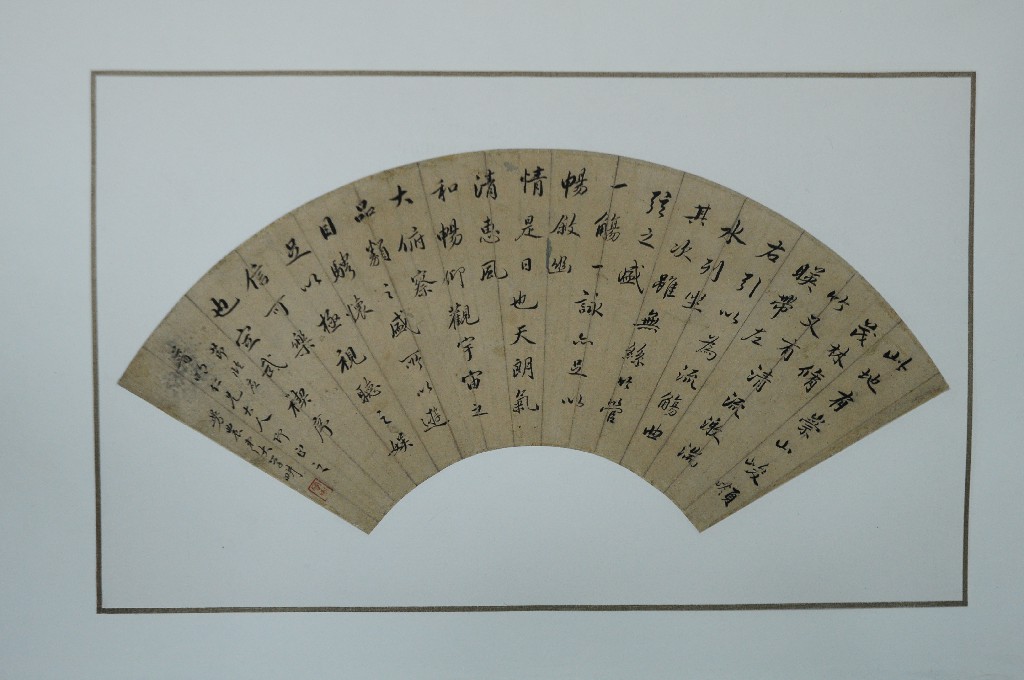 此地有崇山峻領
茂林脩
竹又有清流激湍
暎帶左
右引以為流觴曲
水列坐
其次雖無絲竹管
弦之盛
一觴一詠亦足以
暢敘幽
情是日也天朗氣
清惠風
和暢仰觀宇宙之
大俯察
品類之盛所以遊
目騁懷
足以極視聽之娛
信可樂
也定武禊序
仁兄大人即正之